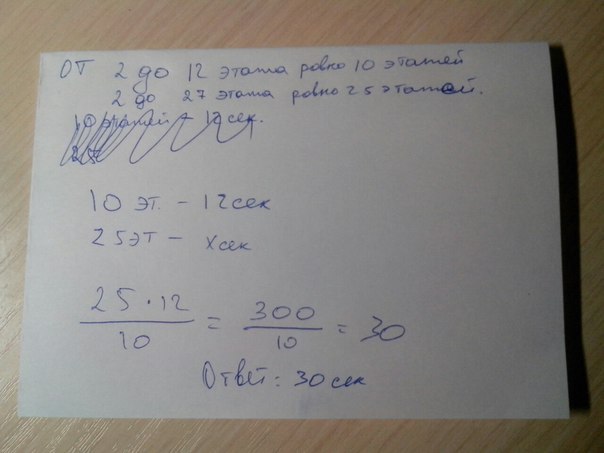 от 2 до 12 этажа ровно 10 этажей
2 до 27 этажа ровно 25 этажей.
10 этажей - 12 сек.
10 эт. - 12 сек
25 эт - x сек
25 · 12 / 10 = 300 / 10 = 30
Ответ: 30 сек